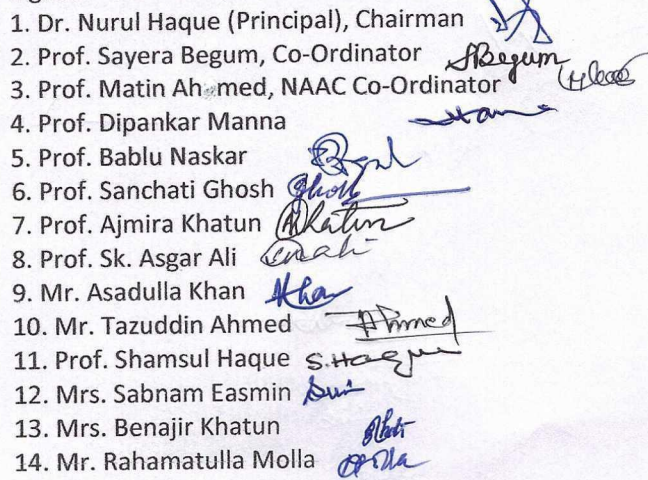 1. Dr. Nurul Haque (Principal), Chairman
2. Prof. Sayera Begum, Co-Ordinator SBegum
3. Prof. Matin Ahmed, NAAC Co-Ordinator
4. Prof. Dipankar Manna
5. Prof. Bablu Naskar
6. Prof. Sanchati Ghosh Ghosh
7. Prof. Ajmira Khatun AKhatun
8. Prof. Sk. Asgar Ali
9. Mr. Asadulla Khan Khan
10. Mr. Tazuddin Ahmed Ahmed
11. Prof. Shamsul Haque S.Haque
12. Mrs. Sabnam Easmin
13. Mrs. Benajir Khatun
14. Mr. Rahamatulla Molla Molla